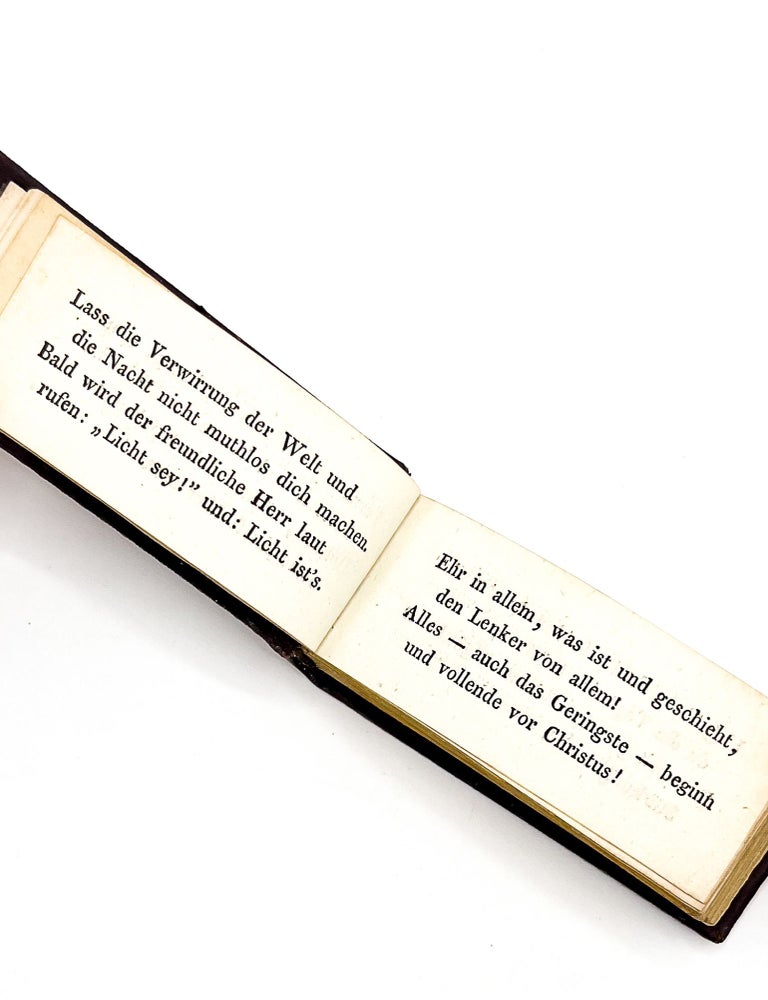 Lass die Verwirrung der Welt und
die Nacht nicht muthlos dich machen.
Bald wird der freundliche Herr laut
rufen: „Licht sey!” und: Licht ist's.
Ehr in allem, was ist und geschieht,
den Lenker von allem!
Alles — auch das Geringste — beginn
und vollende vor Christus!